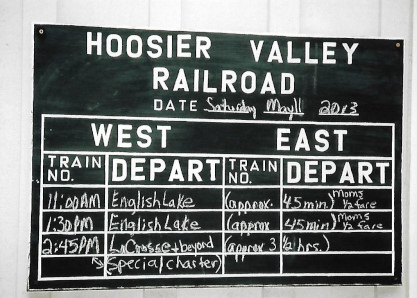 HOOSIER VALLEY
RAILROAD
DATE Saturday May 11 2013
WEST EAST
TRAIN NO. DEPART TRAIN NO. DEPART
11:00AM English Lake (approx. 45 min.) Moms 1/2 fare
1:30PM English Lake (approx 45 min.) Moms 1/2 fare
2:45PM LaCrosse + beyond (approx 3 1/2 hrs.)
(special charter)